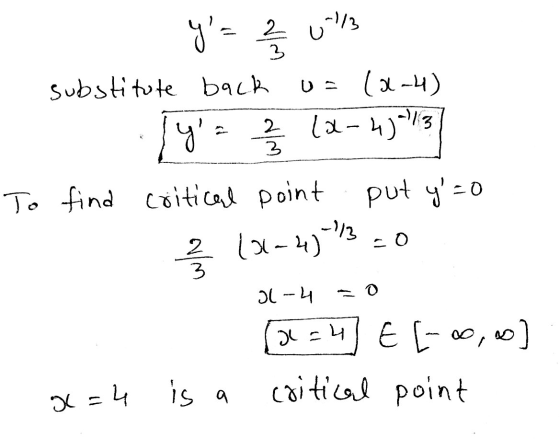 y' = 2/3 u^-1/3
substitute back u = (x-4)
y' = 2/3 (x-4)^-1/3
To find critical point put y'=0
2/3 (x-4)^-1/3 = 0
x-4 = 0
x=4 ∈ [-∞,∞]
x=4 is a critical point